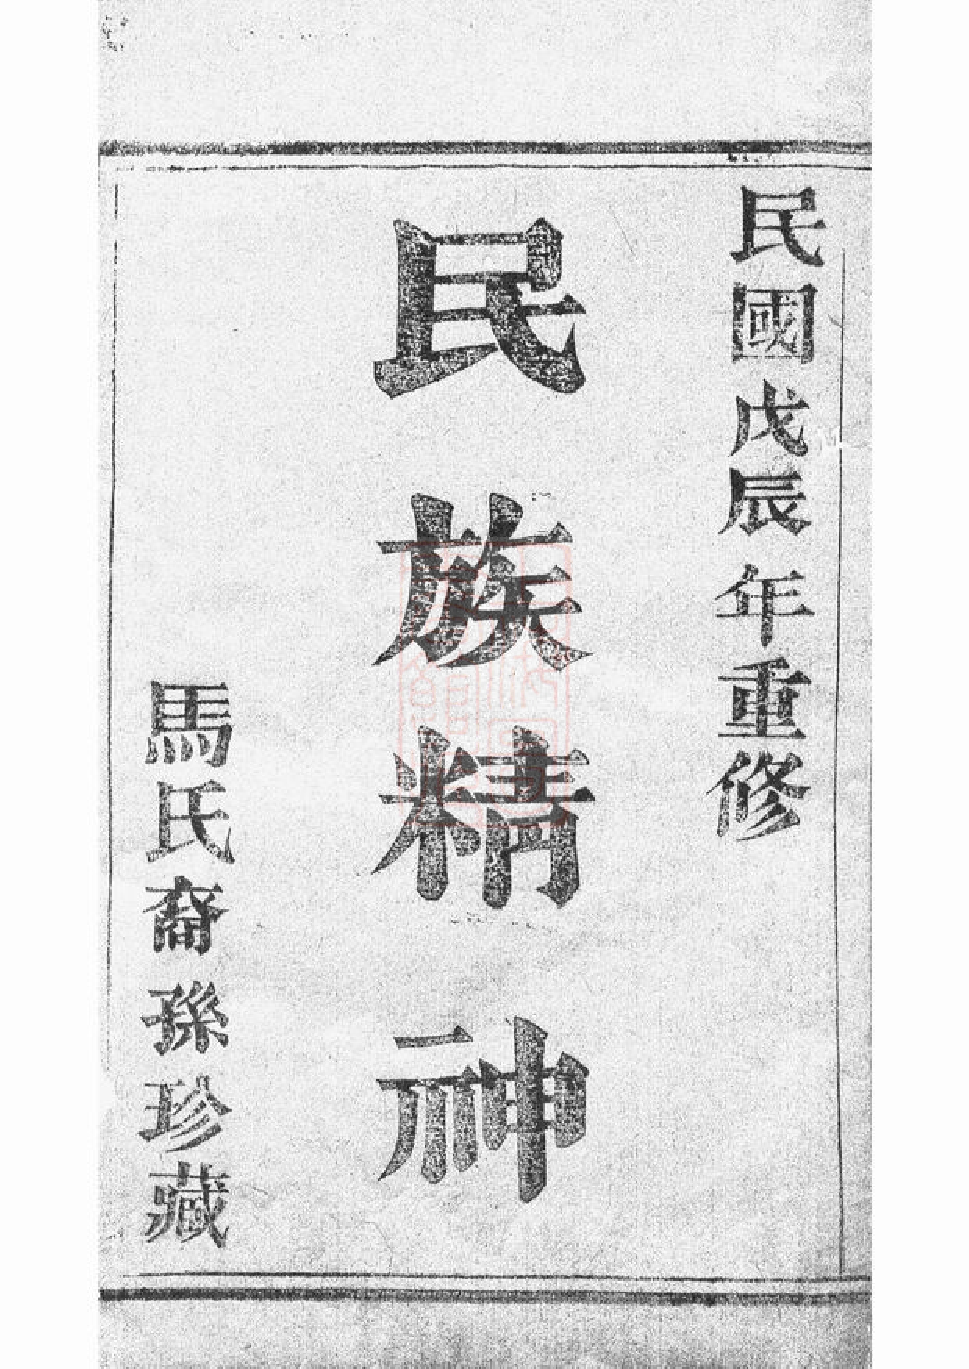 民國戊辰年重修
民族精神
馬氏裔孫珍藏